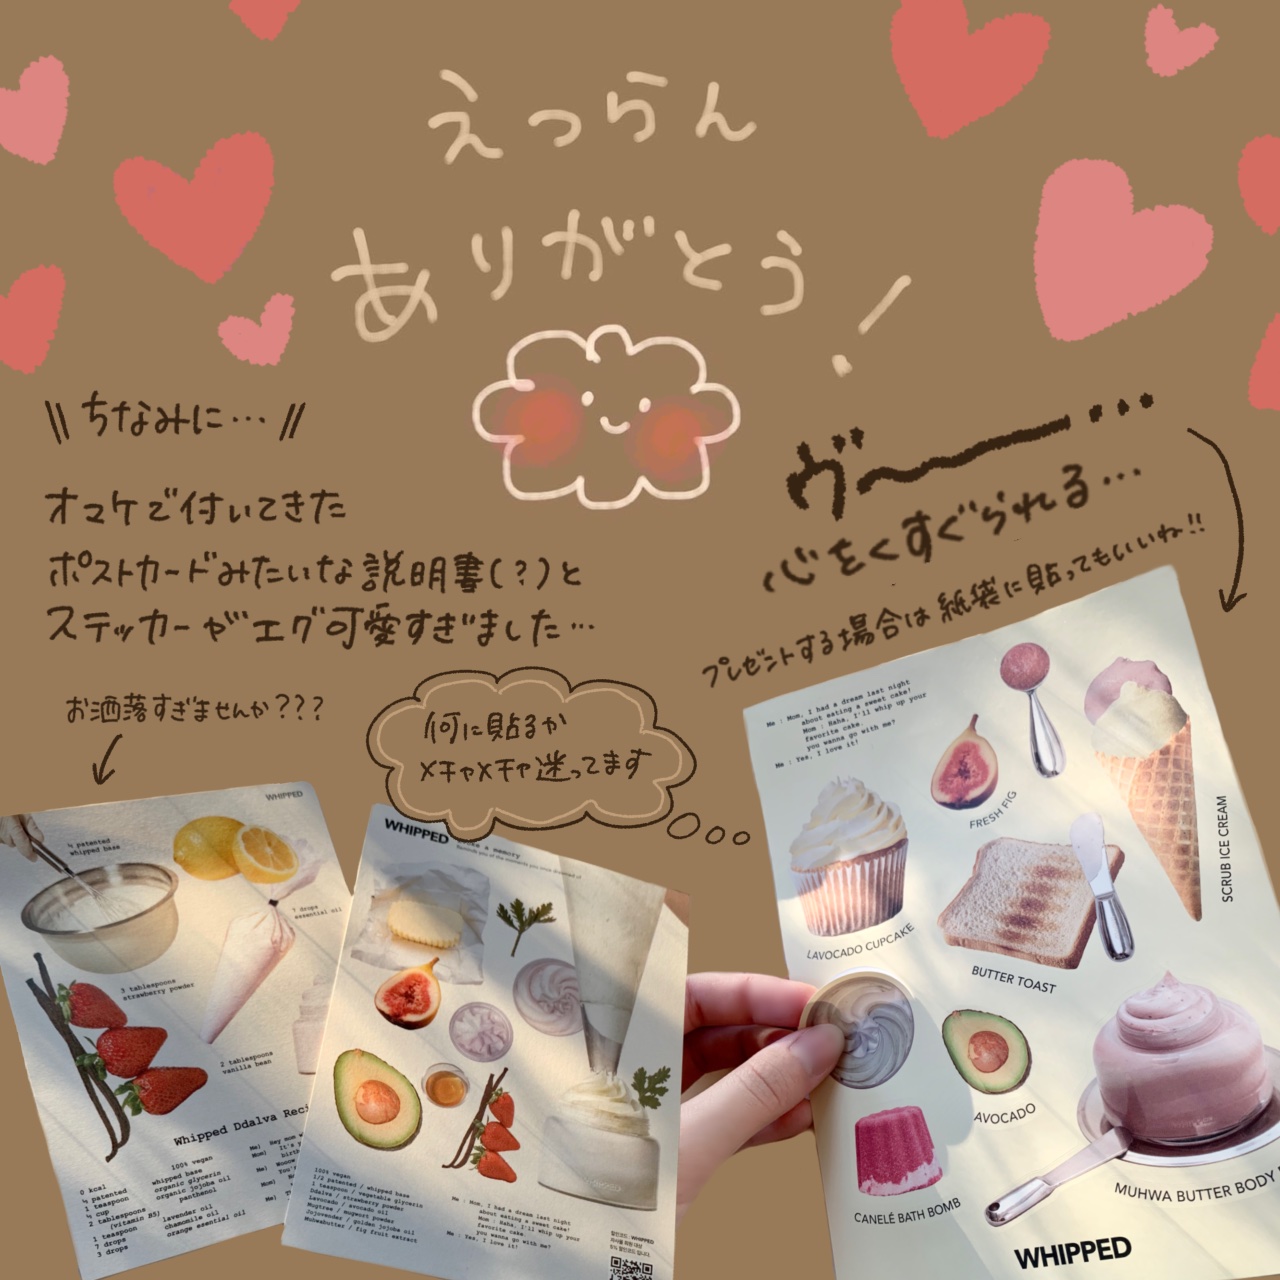 えつらん
ありがとう!
\\ ちなみに… //
オマケで付いてきた
ポストカードみたいな説明書(?)と
ステッカーがエグ可愛すぎました…
お洒落すぎませんか???
何に貼るか
メチャメチャ迷ってます
ヴ〜ー…
心をくすぐられる…
プレゼントする場合は紙袋に貼ってもいいね!!
WHIPPED
¼ patented
whipped base
7 drops
essential oil
3 tablespoons
strawberry powder
2 tablespoons
vanilla bean
Whipped Ddalva Reci
100% vegan
0 kcal
¼ patented whipped base
1 teaspoon organic glycerin
¼ cup organic jojoba oil
2 tablespoons panthenol
(vitamin B5)
1 teaspoon lavender oil
7 drops chamomile oil
3 drops orange esential oil
WHIPPED
a memory
Reminds you of the moments you once dreamed of
100% vegan
1/2 patented / whipped base
1 teaspoon / vegetable glycerin
Ddalva / strawberry powder
Lavocado / avocado oil
Mugtree / mugwort powder
Jojovender / golden jojoba oil
MuhwaButter / fig fruit extract
Me : Mom, I had a dream last night
about eating a sweet cake!
Mom : Haha, I'll whip up your
favorite cake.
you wanna go with me?
Me : Yes, I love it!
Me : Mom, I had a dream last night
about eating a sweet cake!
Mom : Haha, I'll whip up your
favorite cake.
you wanna go with me?
Me : Yes, I love it!
FRESH FIG
SCRUB ICE CREAM
LAVOCADO CUPCAKE
BUTTER TOAST
AVOCADO
CANELÉ BATH BOMB
MUHWA BUTTER BODY
WHIPPED